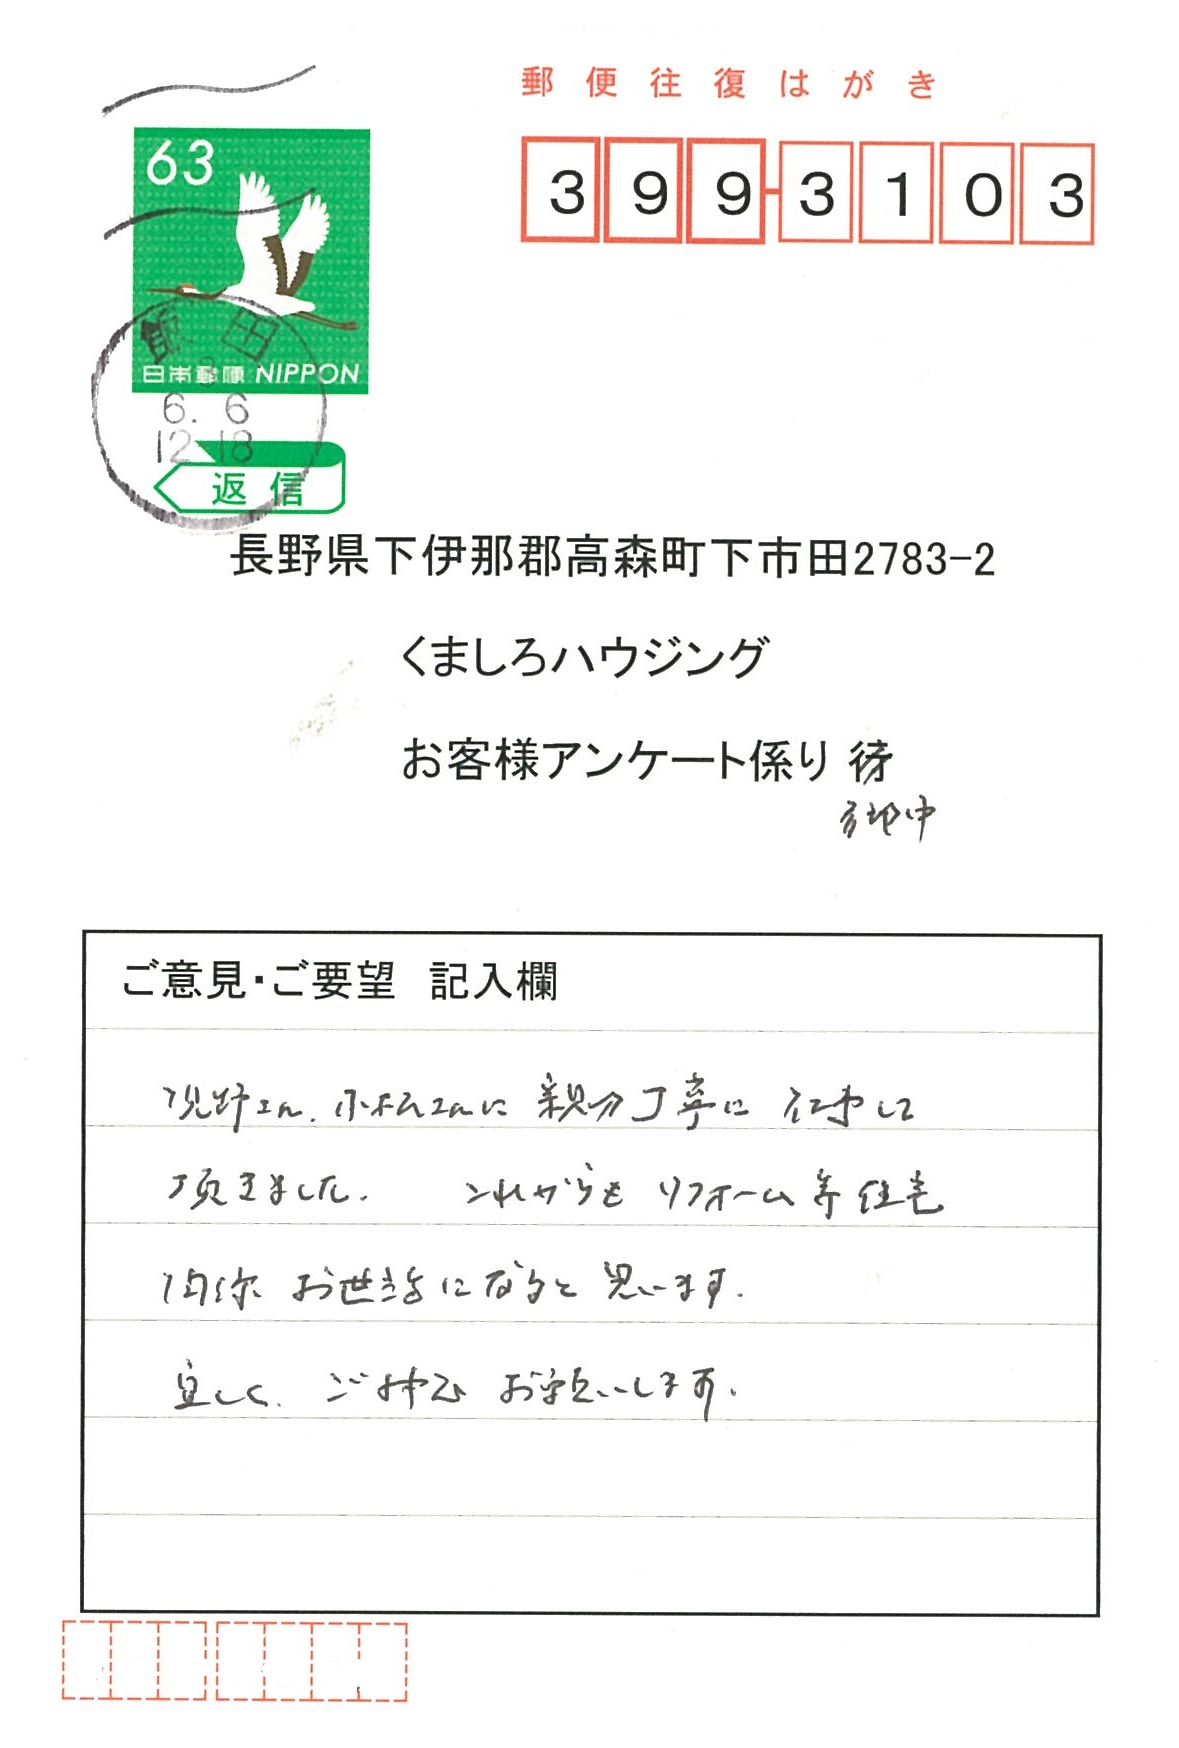 郵便往復はがき
399-3103
63
日本郵便 NIPPON
飯田
3
6. 6
12-18
返信
長野県下伊那郡高森町下市田2783-2
くましろハウジング
お客様アンケート係り 行
御中
ご意見・ご要望 記入欄
さん、小松さんに 親切丁寧に 仕事して
頂きました。 これからも リフォーム等 住宅
関係 お世話になると 思います。
宜しく、ご お願いします。